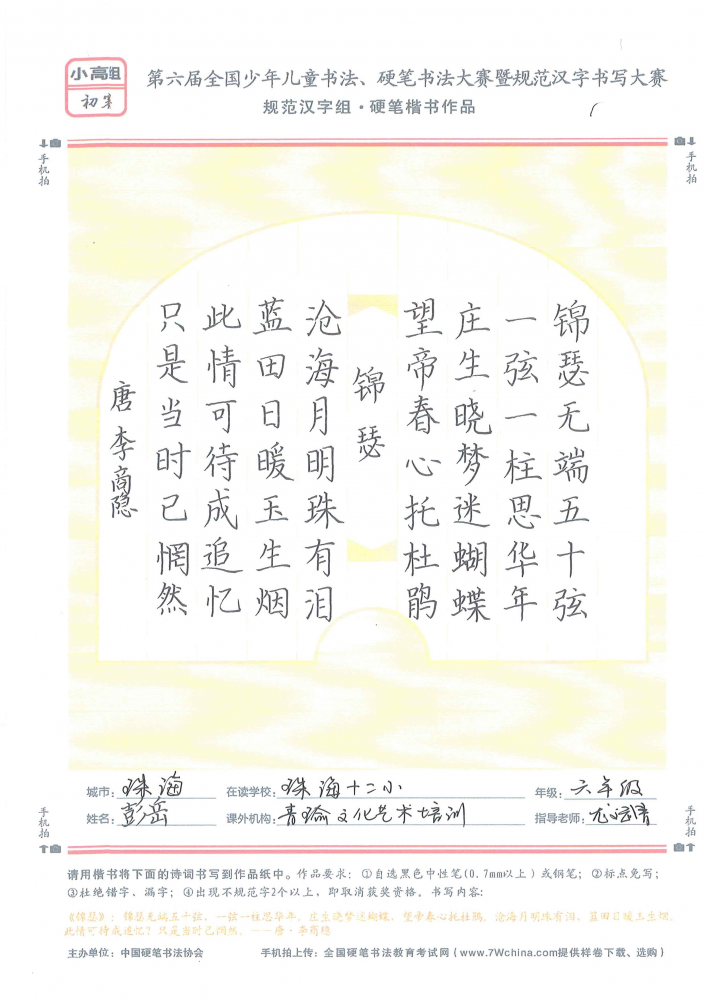 小高组
初集
第六届全国少年儿童书法、硬笔书法大赛暨规范汉字书写大赛
规范汉字组·硬笔楷书作品
手机拍
手机拍
锦瑟无端五十弦
一弦一柱思华年
庄生晓梦迷蝴蝶
望帝春心托杜鹃
锦瑟
沧海月明珠有泪
蓝田日暖玉生烟
此情可待成追忆
只是当时已惘然
唐 李商隐
城市：珠海 在读学校：珠海十二小 年级：六年级
姓名：彭岳 课外机构：青瑜文化艺术培训 指导老师：
手机拍
手机拍
请用楷书将下面的诗词书写到作品纸中。作品要求：①自选黑色中性笔(0.7mm以上）或钢笔；②标点免写；
③杜绝错字、漏字；④出现不规范字2个以上，即取消获奖资格。书写内容：
《锦瑟》：锦瑟无端五十弦，一弦一柱思华年。庄生晓梦迷蝴蝶，望帝春心托杜鹃。沧海月明珠有泪，蓝田日暖玉生烟。
此情可待成追忆？只是当时已惘然。——唐·李商隐
主办单位：中国硬笔书法协会 手机拍上传：全国硬笔书法教育考试网（www.7Wchina.com提供样卷下载、选购）